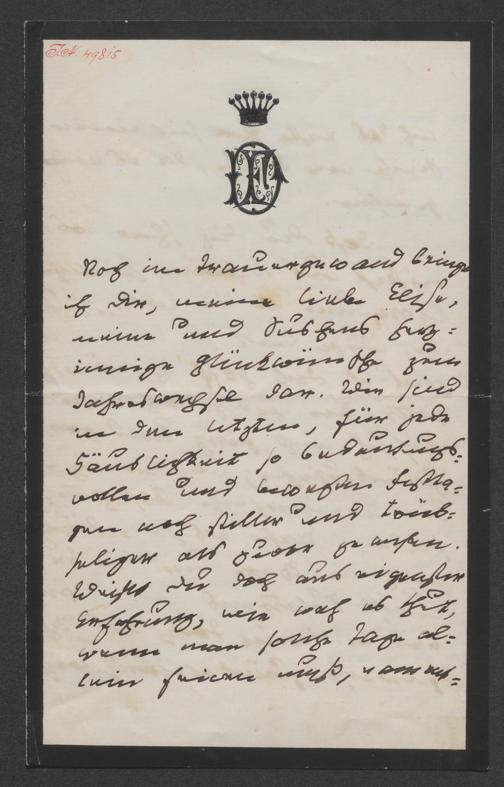 I.N. 49815
Noch im Trauergewand bringe
ich Dir, meine liebe Elise,
meine und Suschens herz-
innige Glückwünsche zum
Jahreswechsel dar. Wir sind
in den letzten, für jede
Häuslichkeit so bedeutungs-
vollen und ernsten Festta-
gen noch stiller und trüb-
seliger als zuvor gewesen.
Weißt Du doch aus eigenster
Erfahrung, wie weh es thut,
wenn man solche Tage al-
lein feiern muß, nament-